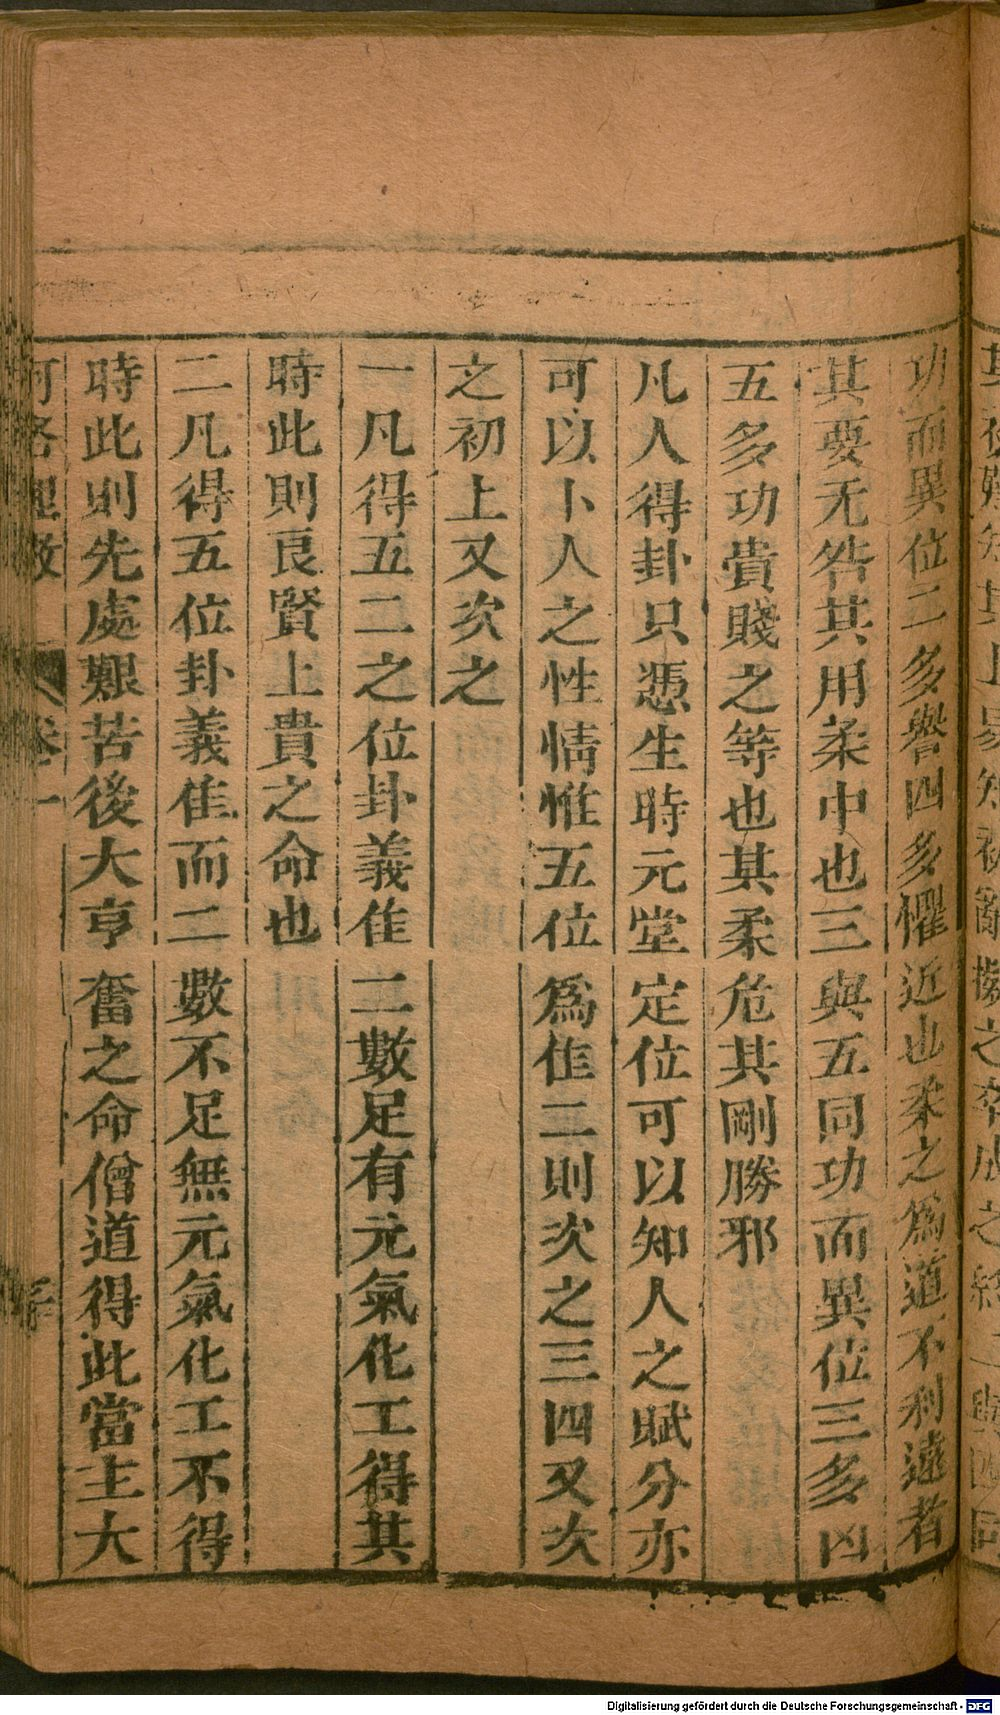 功而異位二多譽四多懼近也柔之爲道不利遠者
其要无咎其用柔中也三與五同功而異位三多凶
五多功貴賤之等也其柔危其剛勝邪
凡人得卦只憑生時元堂定位可以知人之賦分亦
可以卜人之性情惟五位爲隹二則次之三四又次
之初上又次之
一凡得五二之位卦義隹二數足有元氣化工得其
時此則良賢上貴之命也
二凡得五位卦義隹而二數不足無元氣化工不得
時此則先處艱苦後大亨奮之命僧道得此當主大
河洛理數 卷一
Digitalisierung gefördert durch die Deutsche Forschungsgemeinschaft - DFG